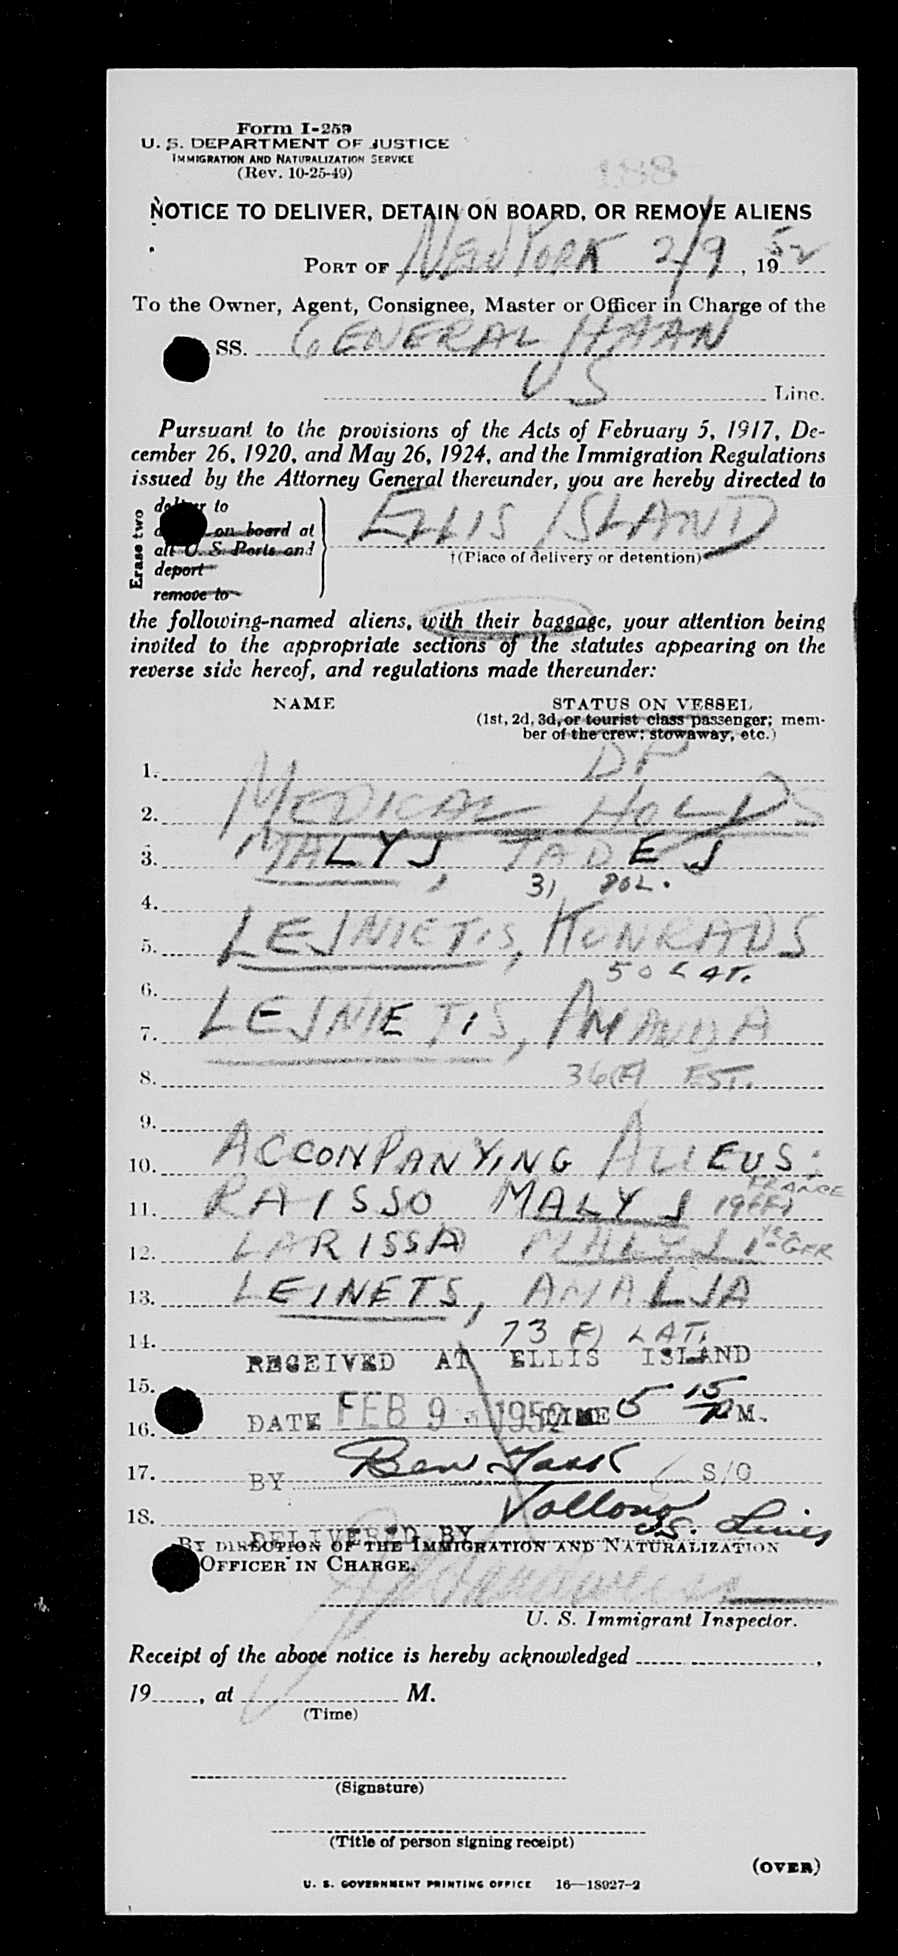 Form I-259
U. S. DEPARTMENT OF JUSTICE
IMMIGRATION AND NATURALIZATION SERVICE
(Rev. 10-25-49)
188
NOTICE TO DELIVER, DETAIN ON BOARD, OR REMOVE ALIENS
PORT OF NEW YORK 2/9, 1952
To the Owner, Agent, Consignee, Master or Officer in Charge of the
SS. GENERAL HAAN
US Line.
Pursuant to the provisions of the Acts of February 5, 1917, De-
cember 26, 1920, and May 26, 1924, and the Immigration Regulations
issued by the Attorney General thereunder, you are hereby directed to
Erase two
deliver to
on board at
all U. S. Ports and
deport
remove to
ELLIS ISLAND
†(Place of delivery or detention)
the following-named aliens, with their baggage, your attention being
invited to the appropriate sections of the statutes appearing on the
reverse side hereof, and regulations made thereunder:
NAME STATUS ON VESSEL
(1st, 2d, 3d, or tourist class passenger; mem-
ber of the crew; stowaway, etc.)
1. DP
2. MEDICAL HOLDS
3. MALYJ, TADEJ
4. 31 POL.
5. LEJNIETIS, KONRADS
6. 50 LAT.
7. LEJNIETIS, AMANDA
8. 36(F) EST.
9.
10. ACCONPANYING ALIEUS:
11. RAISSO MALYJ 19(F) FRANCE
12. LARISSA MALYJ GER
13. LEINETS, ANALJA
14. 73 F) LAT.
RECEIVED AT ELLIS ISLAND
15.
16. DATE FEB 9 1952 TIME 5 15 P M.
17. BY Ben S/O
18.
DELIVERED BY U.S. Lines
BY DIRECTION OF THE IMMIGRATION AND NATURALIZATION
OFFICER IN CHARGE.
U. S. Immigrant Inspector.
Receipt of the above notice is hereby acknowledged ,
19 , at M.
(Time)
(Signature)
(Title of person signing receipt)
(OVER)
U. S. GOVERNMENT PRINTING OFFICE 16—18927-2